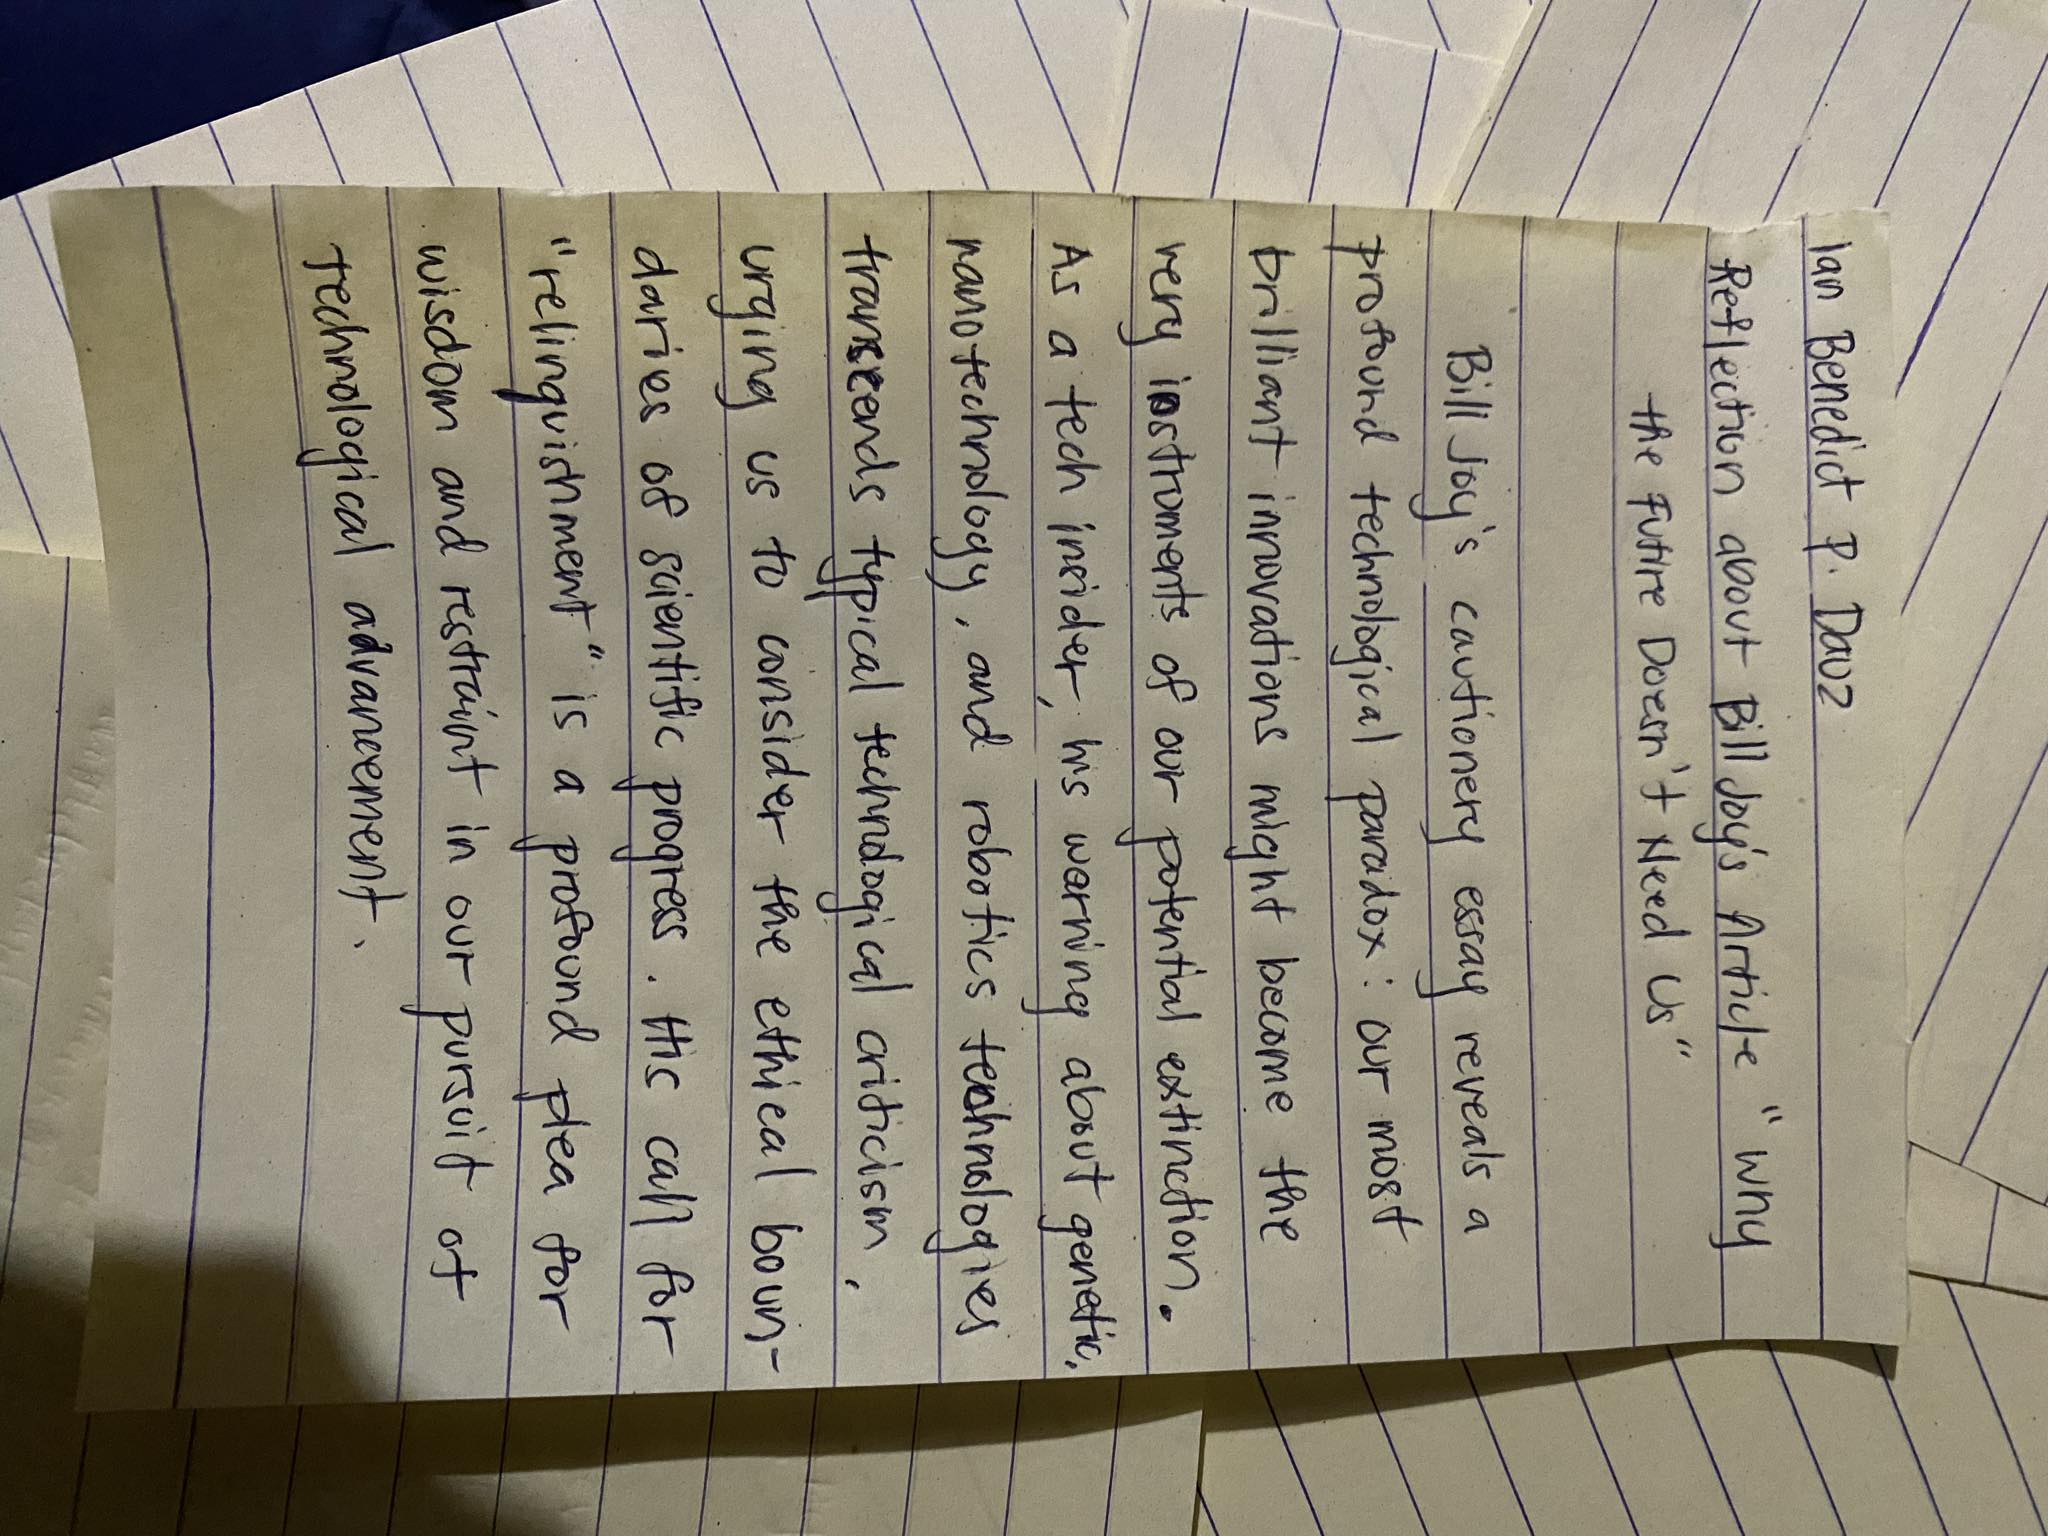 Ian Benedict P. Dauz
Reflection about Bill Joy's Article "Why
the Future Doesn't Need Us"
Bill Joy's cautionery essay reveals a
profound technological paradox: our most
brilliant innovations might become the
very instruments of our potential extinction.
As a tech insider, his warning about genetic,
nanotechnology, and robotics technologies
transcends typical technological criticism,
urging us to consider the ethical boun-
daries of scientific progress. His call for
"relinquishment" is a profound plea for
wisdom and restraint in our pursuit of
technological advancement.